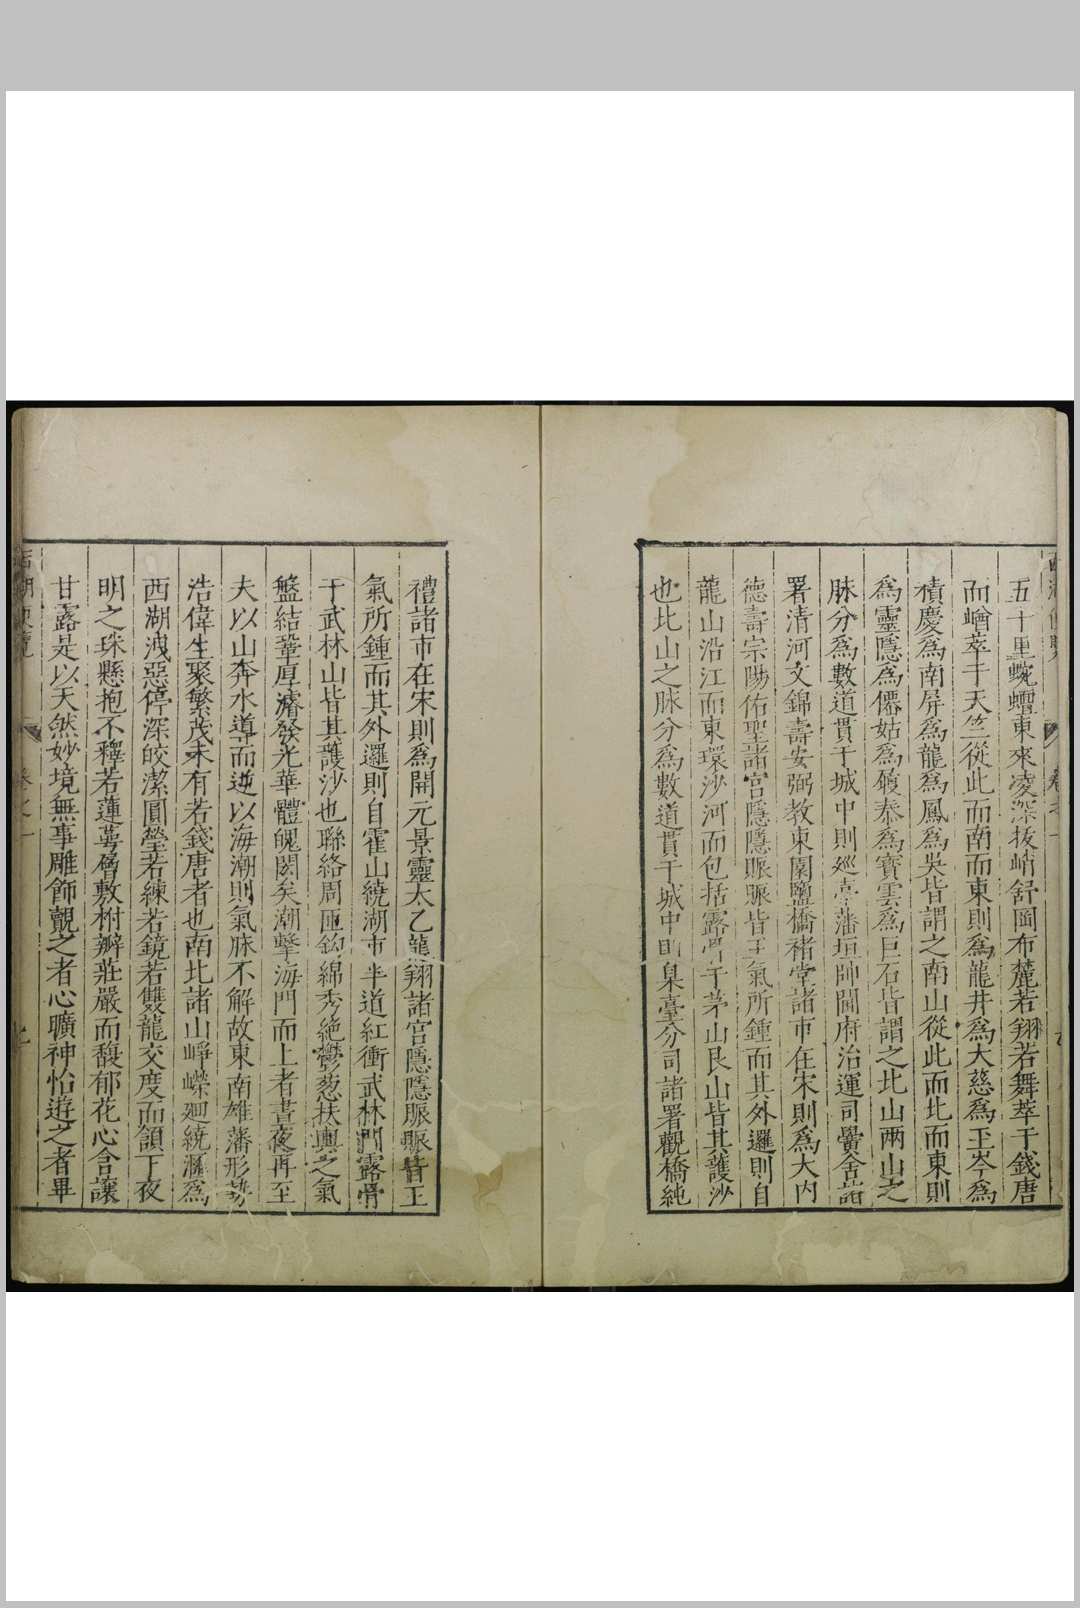 五十里蜿蟺東來凌深拔峭舒岡布麓若翔若舞萃于錢唐
而崷崒于天竺從此而南而東則爲龍井爲大慈爲玉岑爲
積慶爲南屏爲龍爲鳳爲吳皆謂之南山從此而北而東則
爲靈隱爲僊姑爲履泰爲寶雲爲巨石皆謂之北山兩山之
脉分爲數道貫于城中則廵臺藩垣帥閫府治運司黌舍諸
署清河文錦壽安弼教東園鹽橋褚堂諸市在宋則爲大内
德壽宗陽佑聖諸宮隱隱賑賑皆王氣所鍾而其外邏則自
龍山沿江而東環沙河而包括露骨于茅山艮山皆其護沙
也北山之脉分爲數道貫于城中則臬臺分司諸署觀橋純
禮諸市在宋則爲開元景靈太乙龍翔諸宮隱隱賑賑皆王
氣所鍾而其外邏則自霍山繞湖市半道紅衝武林門露骨
于武林山皆其護沙也聯絡周匝鈎綿秀絶鬱葱扶輿之氣
盤結鞏厚濬發光華體魄閎矣潮擊海門而上者晝夜再至
夫以山奔水導而逆以海潮則氣脉不解故東南雄藩形勢
浩偉生聚繁茂未有若錢唐者也南北諸山崢嶸廻繞滙爲
西湖洩惡停深皎潔圓瑩若練若鏡若雙龍交度而頷下夜
明之珠懸抱不釋若蓮萼層敷柎瓣莊嚴而馥郁花心含讓
甘露是以天然妙境無事雕飾覿之者心曠神怡遊之者畢
西湖 覽
卷之一